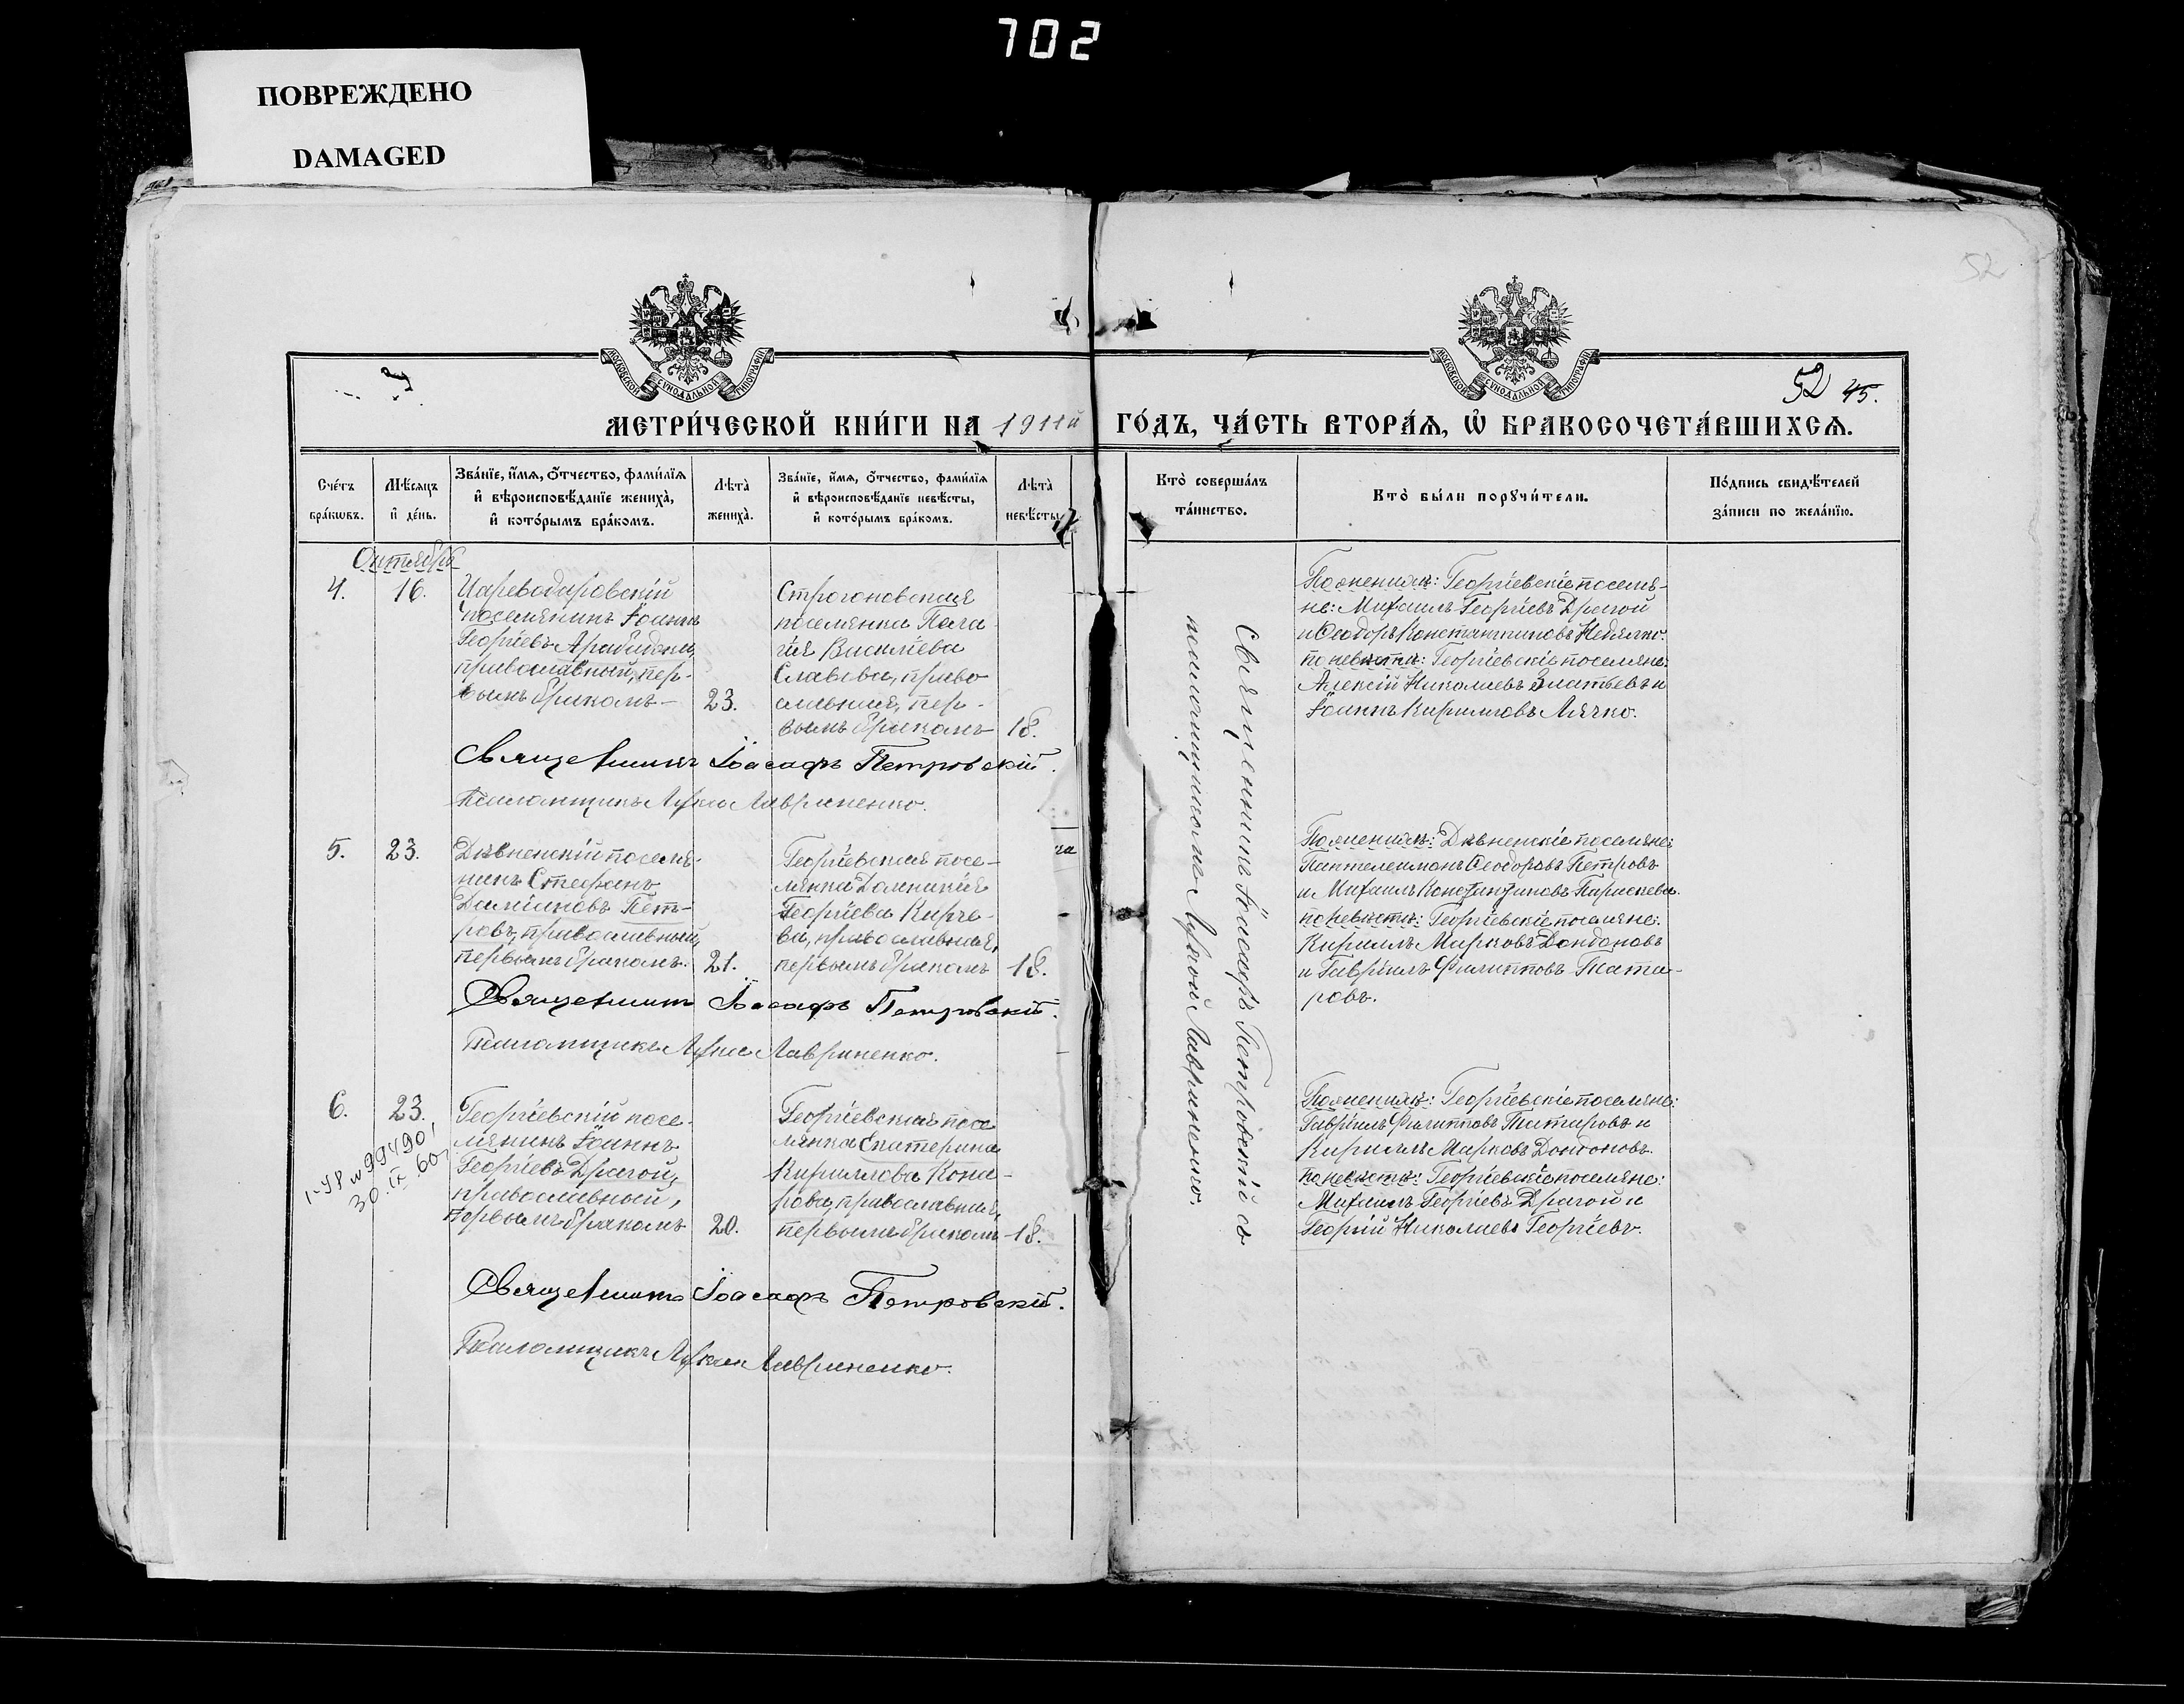 702
ПОВРЕЖДЕНО
DAMAGED
52
52 45.
МЕТРИ́ЧЕСКОЙ КНИ́ГИ НА 1911й ГО́ДЪ, ЧА́СТЬ ВТОРА́Ѧ, Ѡ҆ БРАКОСОЧЕТА́ВШИХСѦ.
Сче́тъ
бра́кѡвъ.
Мѣ́сѧцъ
и҆ де́нь.
Зва́нїе, и҆́мѧ, ѻ҆́тчество, фами́лїѧ
и҆ вѣроисповѣ́данїе жениха̀,
и҆ кото́рымъ бра́комъ.
Лѣта̀
жениха̀.
Зва́нїе, и҆́мѧ, ѻ҆́тчество, фами́лїѧ
и҆ вѣроисповѣ́данїе невѣ́сты,
и҆ кото́рымъ бра́комъ.
Лѣта̀
невѣ́сты
Кто̀ соверша́лъ
та́инство.
Кто̀ бы́ли порꙋчи́тели.
По́дпись свидѣ́телей
за́писи по жела́нїю.
Октября
4.
16.
Царевода́ровскій
поселянинъ Іоаннъ
Георгіевъ
православный, пер-
вымъ бракомъ-
23.
Строгоновская
поселянка Пела
гія Василіева
Славова, право
славная, пер-
вымъ бракомъ
18.
По женихѣ: Георгіевскіе поселя-
не: Михаилъ Георгіевъ Драгой
и Ѳеодоръ Константиновъ Недялко.
по невѣстѣ: Георгіевскіе поселяне:
Алексій Николаевъ Златьевъ и
Іоаннъ Кирилловъ Лячко.
Священникъ Іоасафъ Петровскій.
Псаломщикъ Лука Лавриненко.
5.
23.
Дѣвненскій поселя-
нинъ Стефанъ
Даміановъ Пет-
ровъ, православный,
первымъ бракомъ.
21.
Георгіевская посе-
лянка Домникія
Георгіева Кирче-
ва, православная,
первымъ бракомъ
18.
По женихѣ: Дѣвненскіе поселяне:
Пантелеимонъ Ѳеодоровъ Петровъ
и Михаилъ Константиновъ
по невѣстѣ: Георгіевскіе поселяне:
Кириллъ Марковъ Дондоновъ
и Гавріилъ Филипповъ Тата-
ровъ.
Священникъ Іоасафъ Петровскій.
Псаломщикъ Лука Лавриненко.
6.
23.
1-У8 № 99490,
30.IX.60
Георгіевскій посе-
лянинъ Іоаннъ
Георгіевъ Драгой,
православный,
первымъ бракомъ
20.
Георгіевская посе
лянка Екатерина
Кириллова Кома-
рова, православная,
первымъ бракомъ
18.
По женихѣ: Георгіевскіе поселяне:
Гавріилъ Филипповъ Татаровъ и
Кириллъ Марковъ Дондоновъ.
по невѣстѣ: Георгіевскіе поселяне:
Михаилъ Георгіевъ Драгой и
Георгій Николаевъ Георгіевъ.
Священникъ Іоасафъ Петровскій.
Псаломщикъ Лука Лавриненко.
Священникъ Іоасафъ Петровскій съ
псаломщикомъ Лукой Лавриненко.